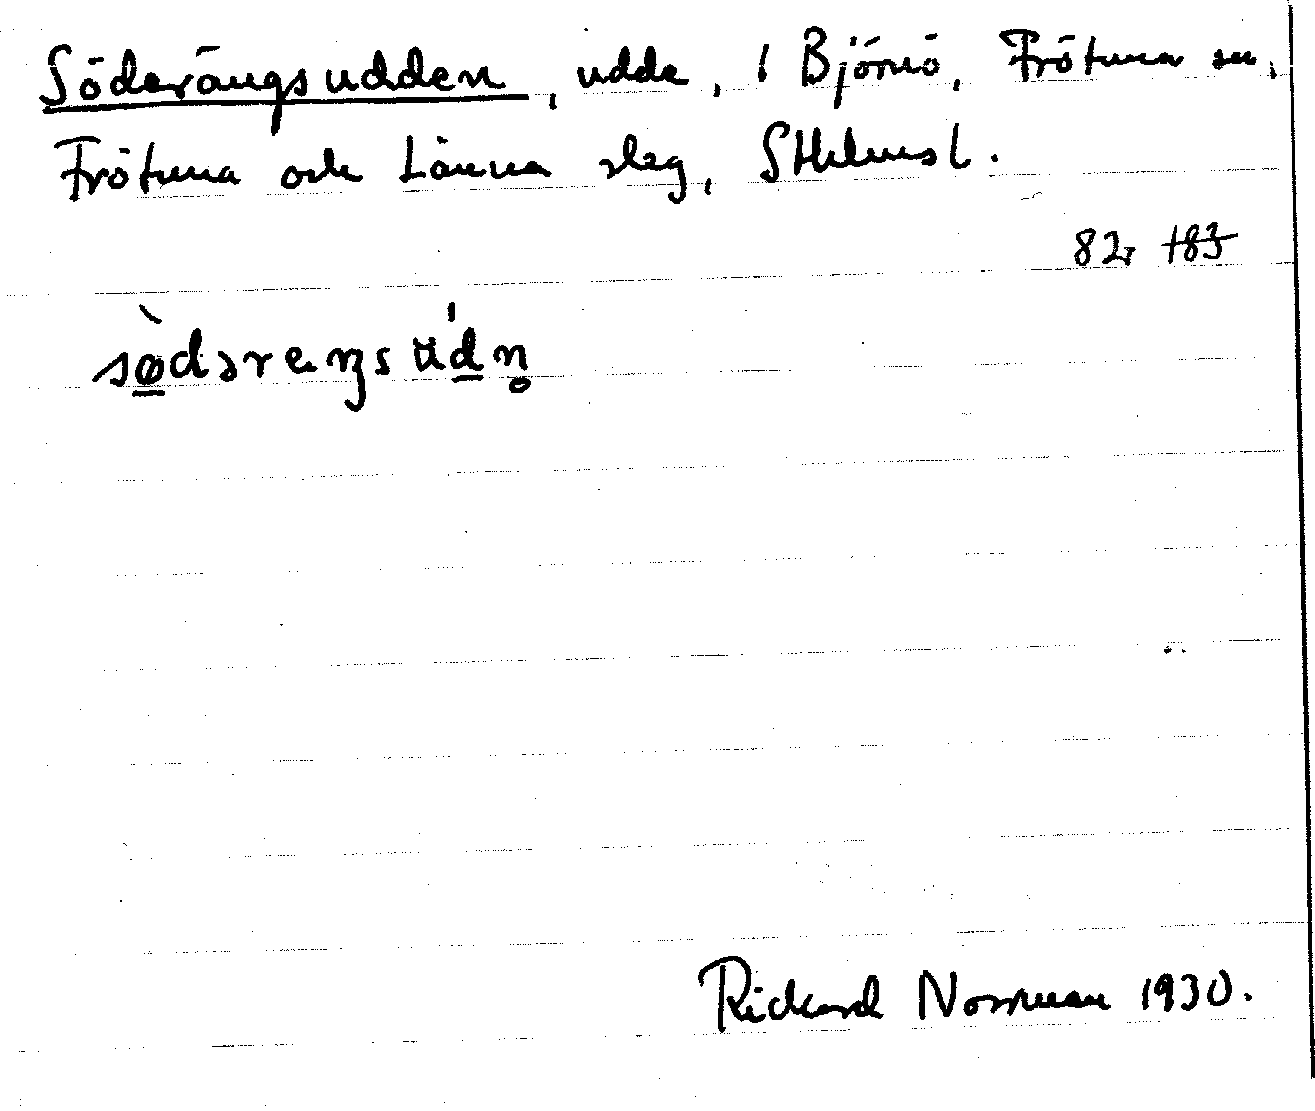 Söderängsudden, udde, i Björnö, Frötuna sn,
Frötuna och Länna slag, Sthlmsl.
82, 183
Rickard Norrman 1930.